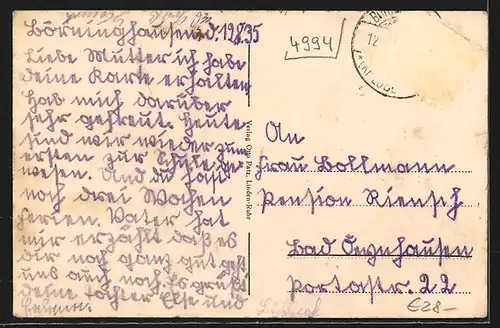 Börninghausen, d. 12.8.35
Liebe Mutter ich habe
deine Karte erhalten
hab mich darüber
sehr gefreut. Heute
sind wir wieder zum
ersten zur Schule ge-
wesen. Und du hast
noch drei Wochen
Ferien. Vater hat
mir erzählt daß es
dir noch ganz gut geht
uns auch noch. Es grüßt
deine Tochter Else und
4994
Verlag Otto Patz, Linden-Ruhr
An
Frau Bollmann
Pension Riensch
Bad Oeynhausen
Portastr. 22
€28-